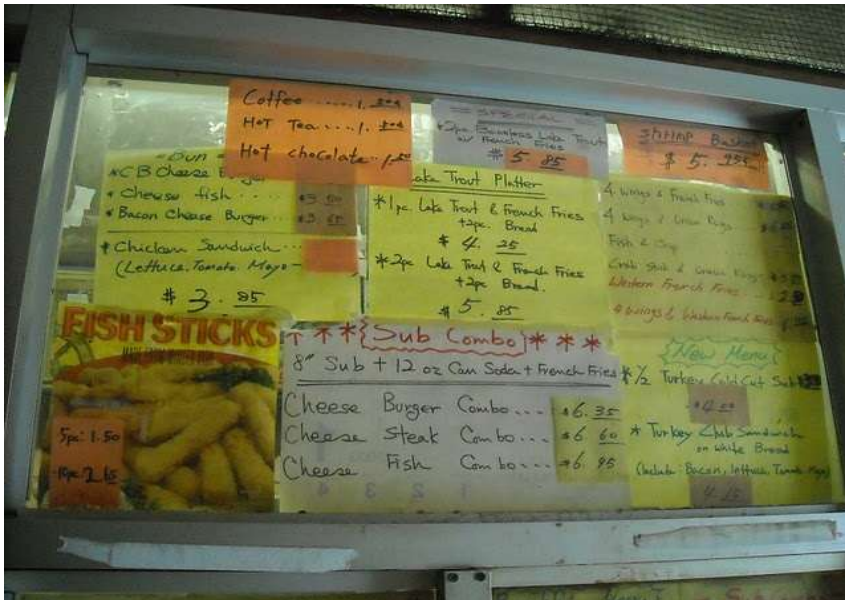 Coffee ..... 1.
HOT Tea.... 1.
HOT chocolate
SPECIAL
2pc. Boneless Lake Trout
w/ French Fries
$ 5. 85
SHRIMP Basket
$ 5. 95
- Bun -
* CB Cheese Burger
* Cheese fish ....
$3.
* Bacon Cheese Burger..
$3. 65
* Chicken Sandwich ...
(Lettuce. Tomato. Mayo
$ 3. 85
Lake Trout Platter
* 1pc. Lake Trout & French Fries
+ 2pc. Bread
$ 4. 25
* 2pc Lake Trout & French Fries
+ 2pc Bread.
$ 5. 85
4 wings & French Fries
4 wings & Onion Rings
Fish & Chip
Crab Stick & Onion Rings
Western French Fries
4 wings & Western French Fries
FISH STICKS
5pc: 1.50
10pc
* * * Sub Combo * * *
8" Sub + 12 oz Can Soda + French Fries
Cheese Burger Combo... $6. 35
Cheese Steak Combo... $6. 60
Cheese Fish Combo... $6. 95
New Menu
* 1/2 Turkey Cold Cut Sub
$4.
* Turkey Club Sandwich
on White Bread
(Include: Bacon, lettuce, Tomato, Mayo)
4.